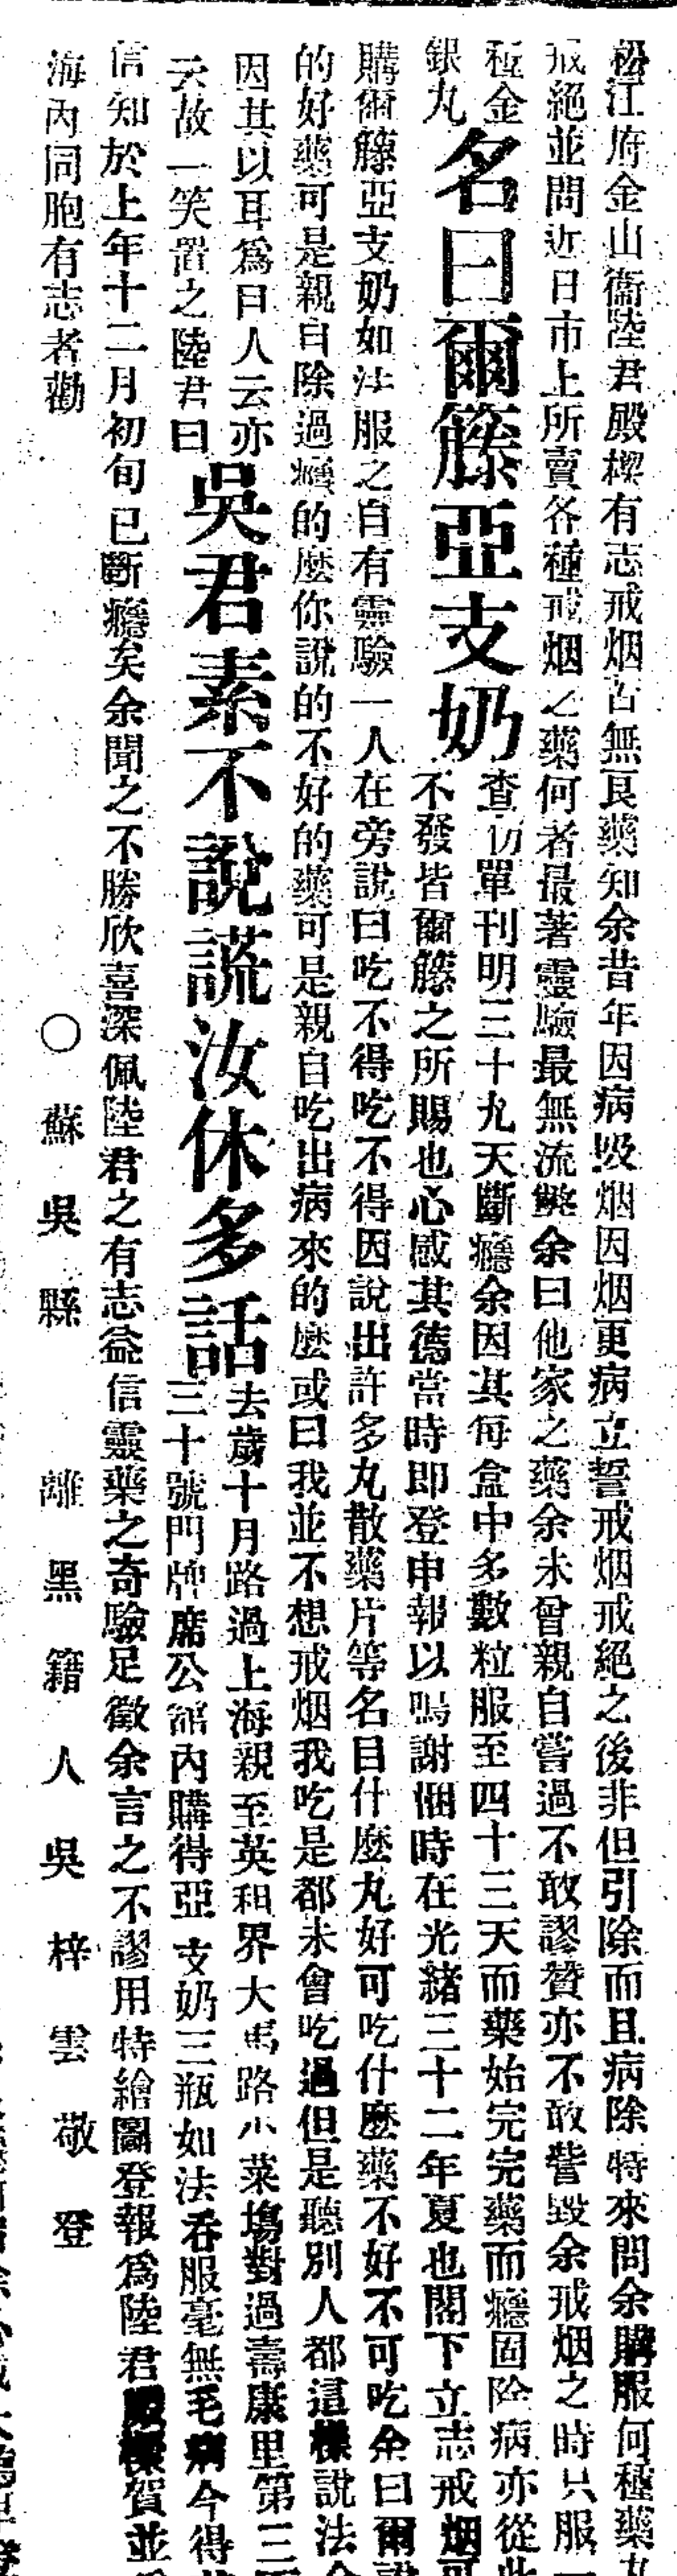 松江府金山衞陸君殿樑有志戒烟苦無良藥知余昔年因病吸烟因烟更病立誓戒烟戒絕之後非但引除而且病除特來問余購服何種藥丸
戒絕並問近日市上所賣各種戒烟之藥何者最著靈驗最無流弊余曰他家之藥余未曾親自嘗過不敢謬贊亦不敢訾毀余戒烟之時只服一
種金
銀丸
名曰爾籐亞支奶
查仿單刊明三十九天斷癮余因其每盒中多數粒服至四十三天而藥始完完藥而癮固除病亦從此
不發皆爾籐之所賜也心感其德當時即登申報以鳴謝悃時在光緒三十二年夏也閣下立志戒烟可
購爾籐亞支奶如法服之自有靈驗一人在旁說曰吃不得吃不得因說出許多丸散藥片等名目什麼丸好可吃什麼藥不好不可吃余曰爾說
的好藥可是親自除過癮的麼你說的不好的藥可是親自吃出病來的麼或曰我並不想戒烟我吃是都未曾吃過但是聽別人都這樣說法余
因其以耳爲目人云亦
云故一笑置之陸君曰
吳君素不說謊汝休多話
去歲十月路過上海親至英租界大馬路小菜塲對過壽康里第三
三十號門牌席公館內購得亞支奶三瓶如法吞服毫無毛病今得
信知於上年十二月初旬已斷癮矣余聞之不勝欣喜深佩陸君之有志益信靈藥之奇驗足徵余言之不謬用特繪圖登報爲陸君殿樑賀並
海內同胞有志者勸
○蘇吳縣 離黑籍人吳梓雲敬登